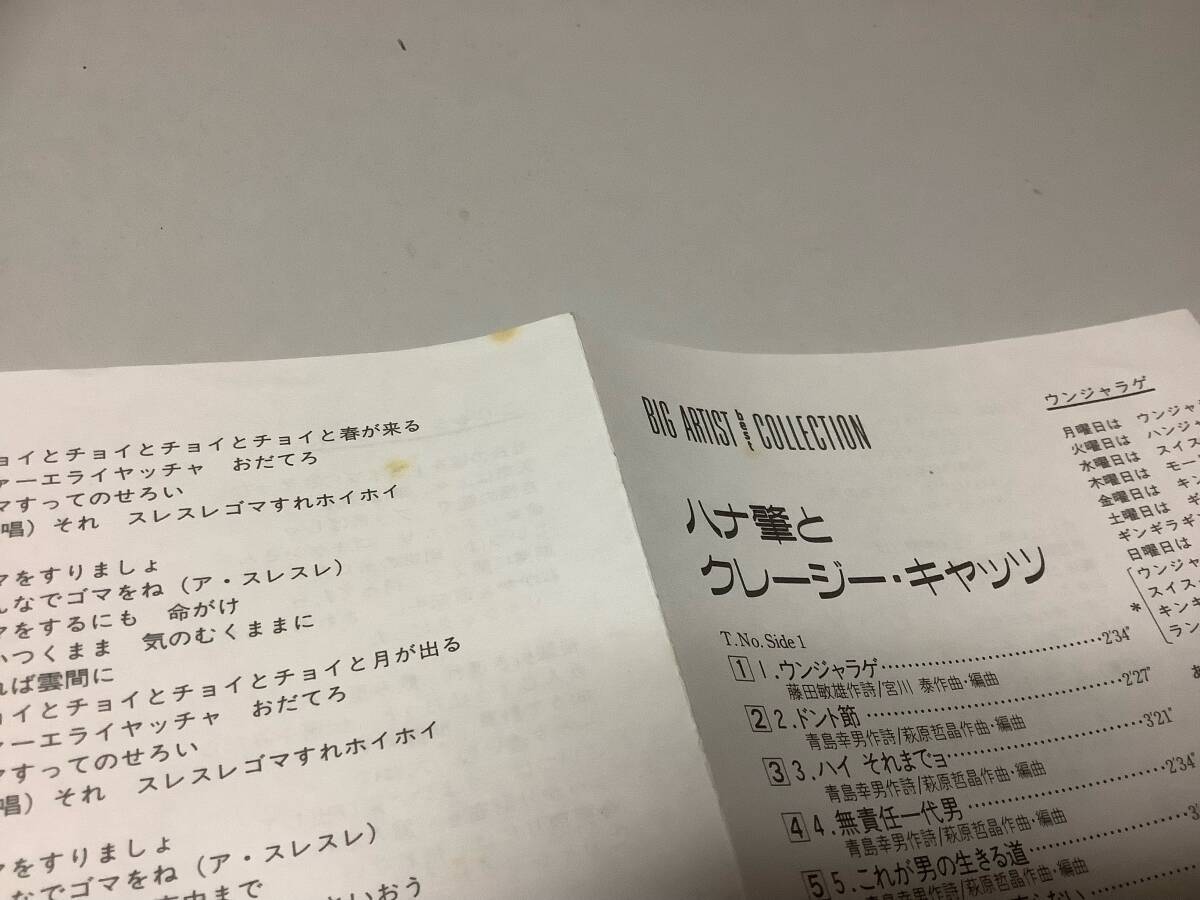 ョイとチョイとチョイとチョイと春が来る
ァーエライヤッチャ おだてろ
マすってのせろい
唱) それ スレスレゴマすれホイホイ
マをすりましょ
んなでゴマをね (ア・スレスレ)
マをするにも 命がけ
いつくまま 気のむくままに
れば雲間に
ョイとチョイとチョイとチョイと月が出る
ァーエライヤッチャ おだてろ
マすってのせろい
唱) それ スレスレゴマすれホイホイ
マをすりましょ
んなでゴマをね (ア・スレスレ)
といおう
BIG ARTIST best COLLECTION
ハナ肇と
クレージー・キャッツ
T.No. Side 1
1 1.ウンジャラゲ 2'34"
藤田敏雄作詩/宮川 泰作曲・編曲
2 2.ドント節 2'27"
青島幸男作詩/萩原哲晶作曲・編曲
3 3.ハイ それまでョ 3'21"
青島幸男作詩/萩原哲晶作曲・編曲
4 4.無責任一代男 2'34"
青島幸男作詩/萩原哲晶作曲・編曲
5 5.これが男の生きる道
青島幸男作詩/萩原哲晶作曲・編曲
ウンジャラゲ
月曜日は ウンジャ
火曜日は ハンジャ
水曜日は スイス
木曜日は モー
金曜日は キン
土曜日は ギ
ギンギラギ
日曜日は
ウンジャ
スイス
* キンキ
ラン